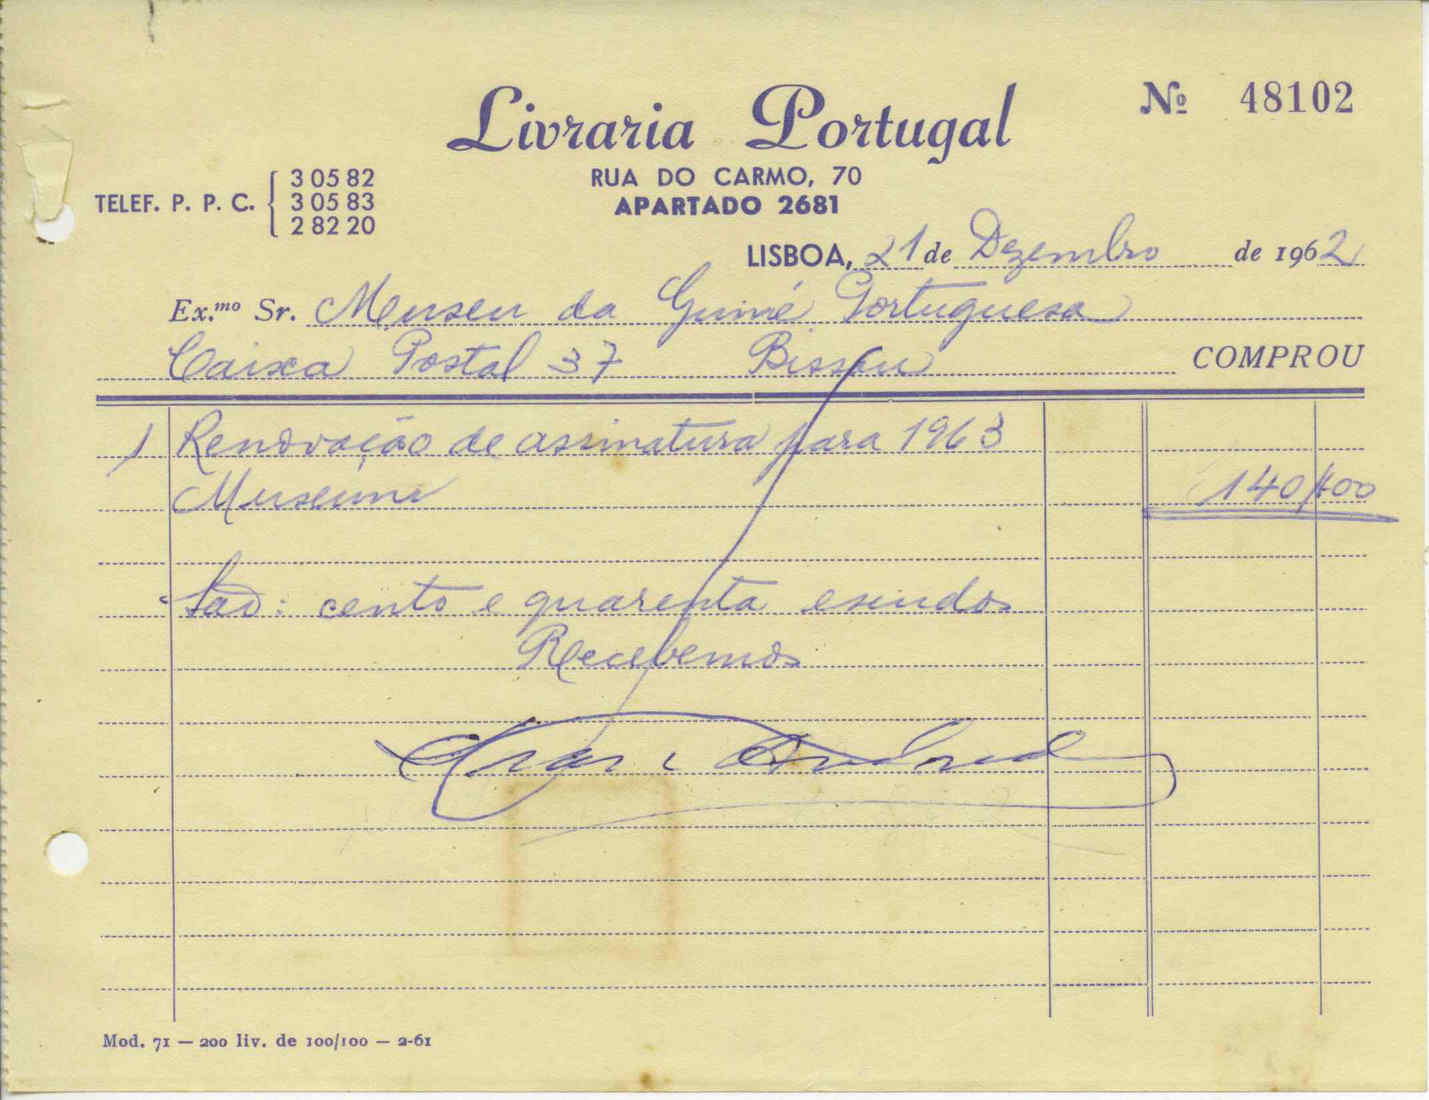 Livraria Portugal
Nº 48102
RUA DO CARMO, 70
APARTADO 2681
TELEF. P. P. C. { 3 05 82
3 05 83
2 82 20
LISBOA, 21 de Dezembro de 1962
Ex.mo Sr. Museu da Guiné Portuguesa
Caixa Postal 37 Bissau COMPROU
1 Renovação de assinatura para 1963
Museum 140$00
São: cento e quarenta escudos
Recebemos
Mod. 71 — 200 liv. de 100/100 — 2-61